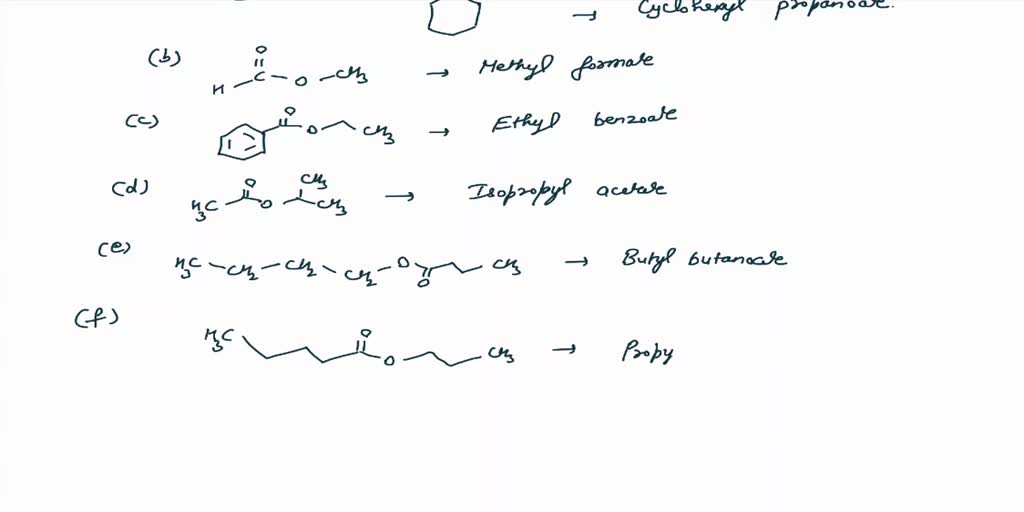 → Cyclohexyl propanoate.
(b) H C O O CH3 → Methyl formate
(c) O O CH3 → Ethyl benzoate
(d) H3C O O CH3 CH3 → Isopropyl acetate
(e) H3C CH2 CH2 CH2 O O CH3 → Butyl butanoate
(f) H3C O O CH3 → Propy